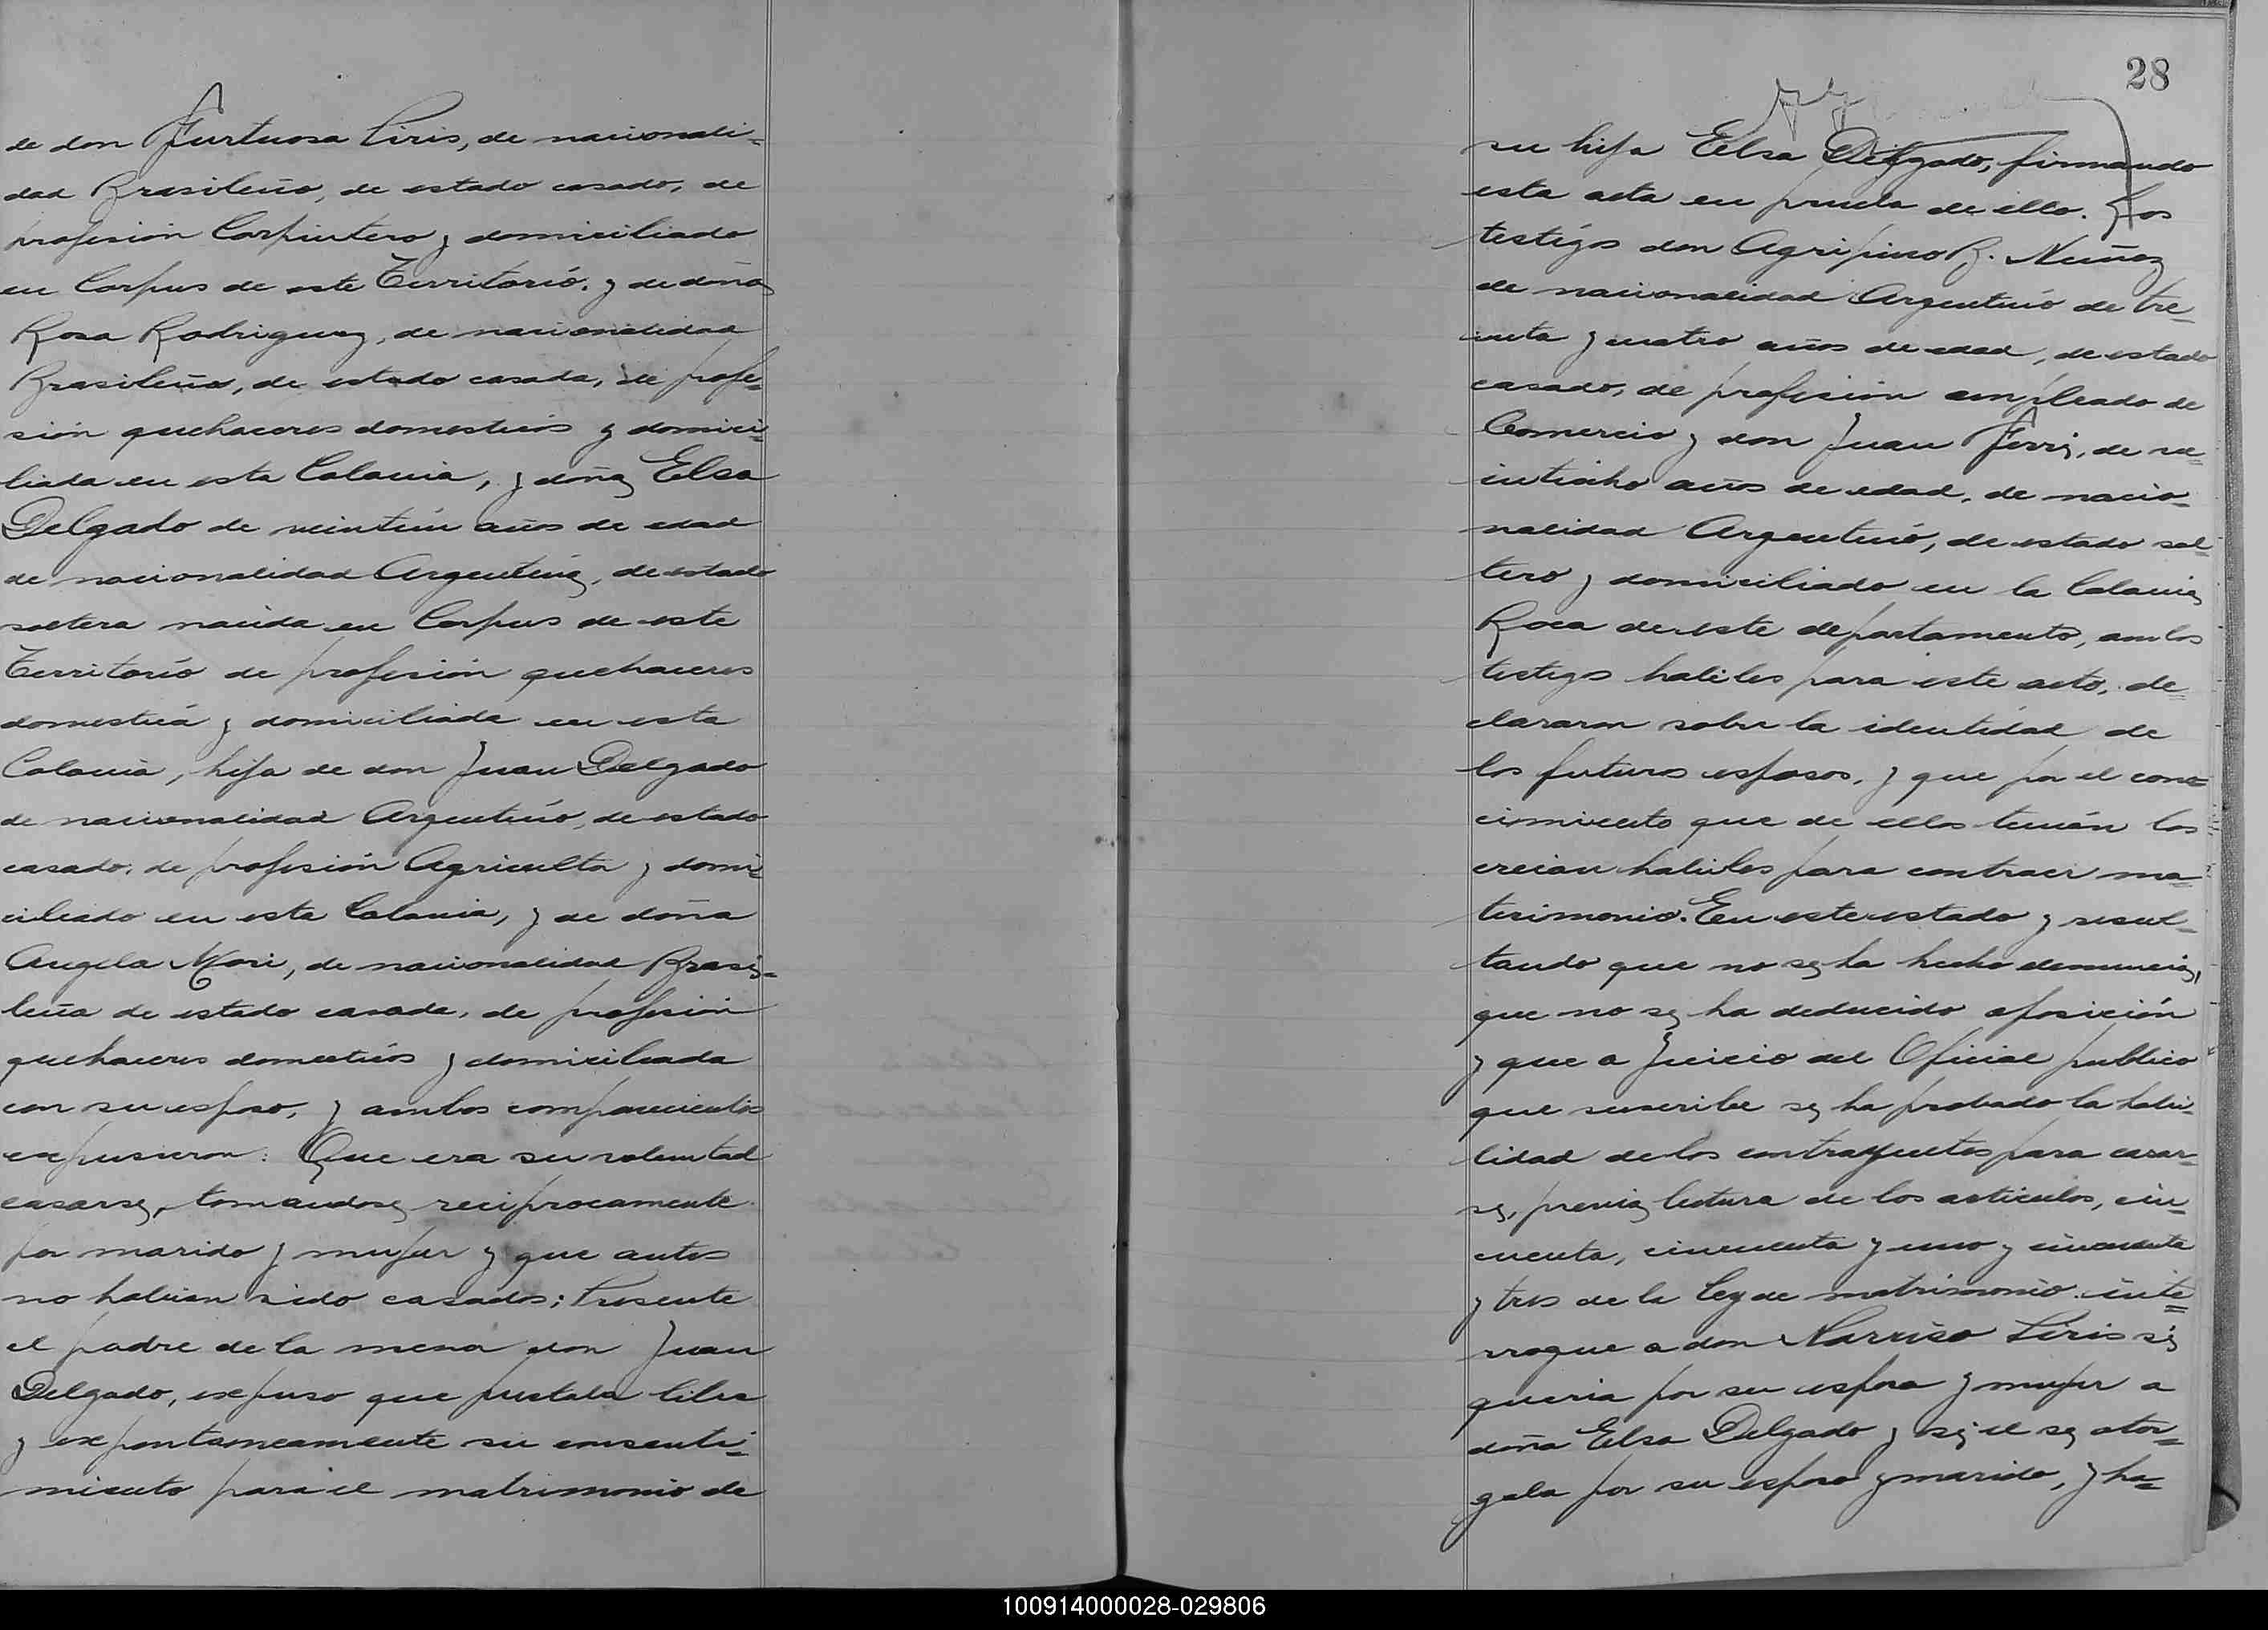 de don Furtuosa Liris, de nacionali-
dad Brasileño, de estado casado, de
profesión Carpintero y domiciliado
en Corpus de este Territorió. y de doña
Rosa Rodriguez, de nacionalidad
Brasileña, de estado casada, de profe-
sión quehaceres domesticós y domici-
liada en esta Colonia, y doña Elsa
Delgado de veintiún años de edad
de nacionalidad Argentina, de estado
soltera nacida en Corpus de este
Territorió de profesión quehaceres
domesticá y domiciliada en esta
Colonia, hija de don Juan Delgado
de nacionalidad Argentinó, de estado
casado, de profesión Agricultor y domi-
ciliado en esta Colonia, y de doña
Angela Mori, de nacionalidad Brasi-
leña de estado casada, de profesión
quehaceres domesticós y domiciliada
con su esposo, y ambos comparecientes
expusieron: Que era su voluntad
casarse, tomandose reciprocamente
por marido y mujer y que antes
no habian sido casados; Presente
el padre de la menor don Juan
Delgado, expuso que prestaba libre
y expontaneamente su consenti-
miento para el matrimonio de
28
su hija Elsa Delgado, firmando
esta acta en prueba de ello. Los
testigos don Agripino R. Nuñez
de nacionalidad Argentinó de tre-
inta y cuatro años de edad, de estado
casado, de profesión empleado de
Comercio y don Juan Ferri, de ve-
intiocho años de edad, de nacio-
nalidad Argentinó, de estado sol-
tero y domiciliado en la Colonia
Roca de este departamento, ambos
testigos habiles para este acto, de-
clararon sobre la identidad de
los futuros esposos, y que por el cono-
cimiento que de ellos tenián los
creian habiles para contraer ma-
trimonio. En este estado y resul-
tando que no se ha hecho denuncia,
que no se ha deducido oposición
y que a juicio del Oficial publico
que suscribe se ha probado la habi-
lidad de los contrayentes para casar-
se, previa lectura de los articulos, cin-
cuenta, cincuenta y uno y cincuenta
y tres de la Ley de matrimonio. inte-
rrogue a don Narciso Liris si
queria por su esposa y mujer a
doña Elsa Delgado y si el se otor-
gaba por su esposo y marido, y ha-
100914000028-029806